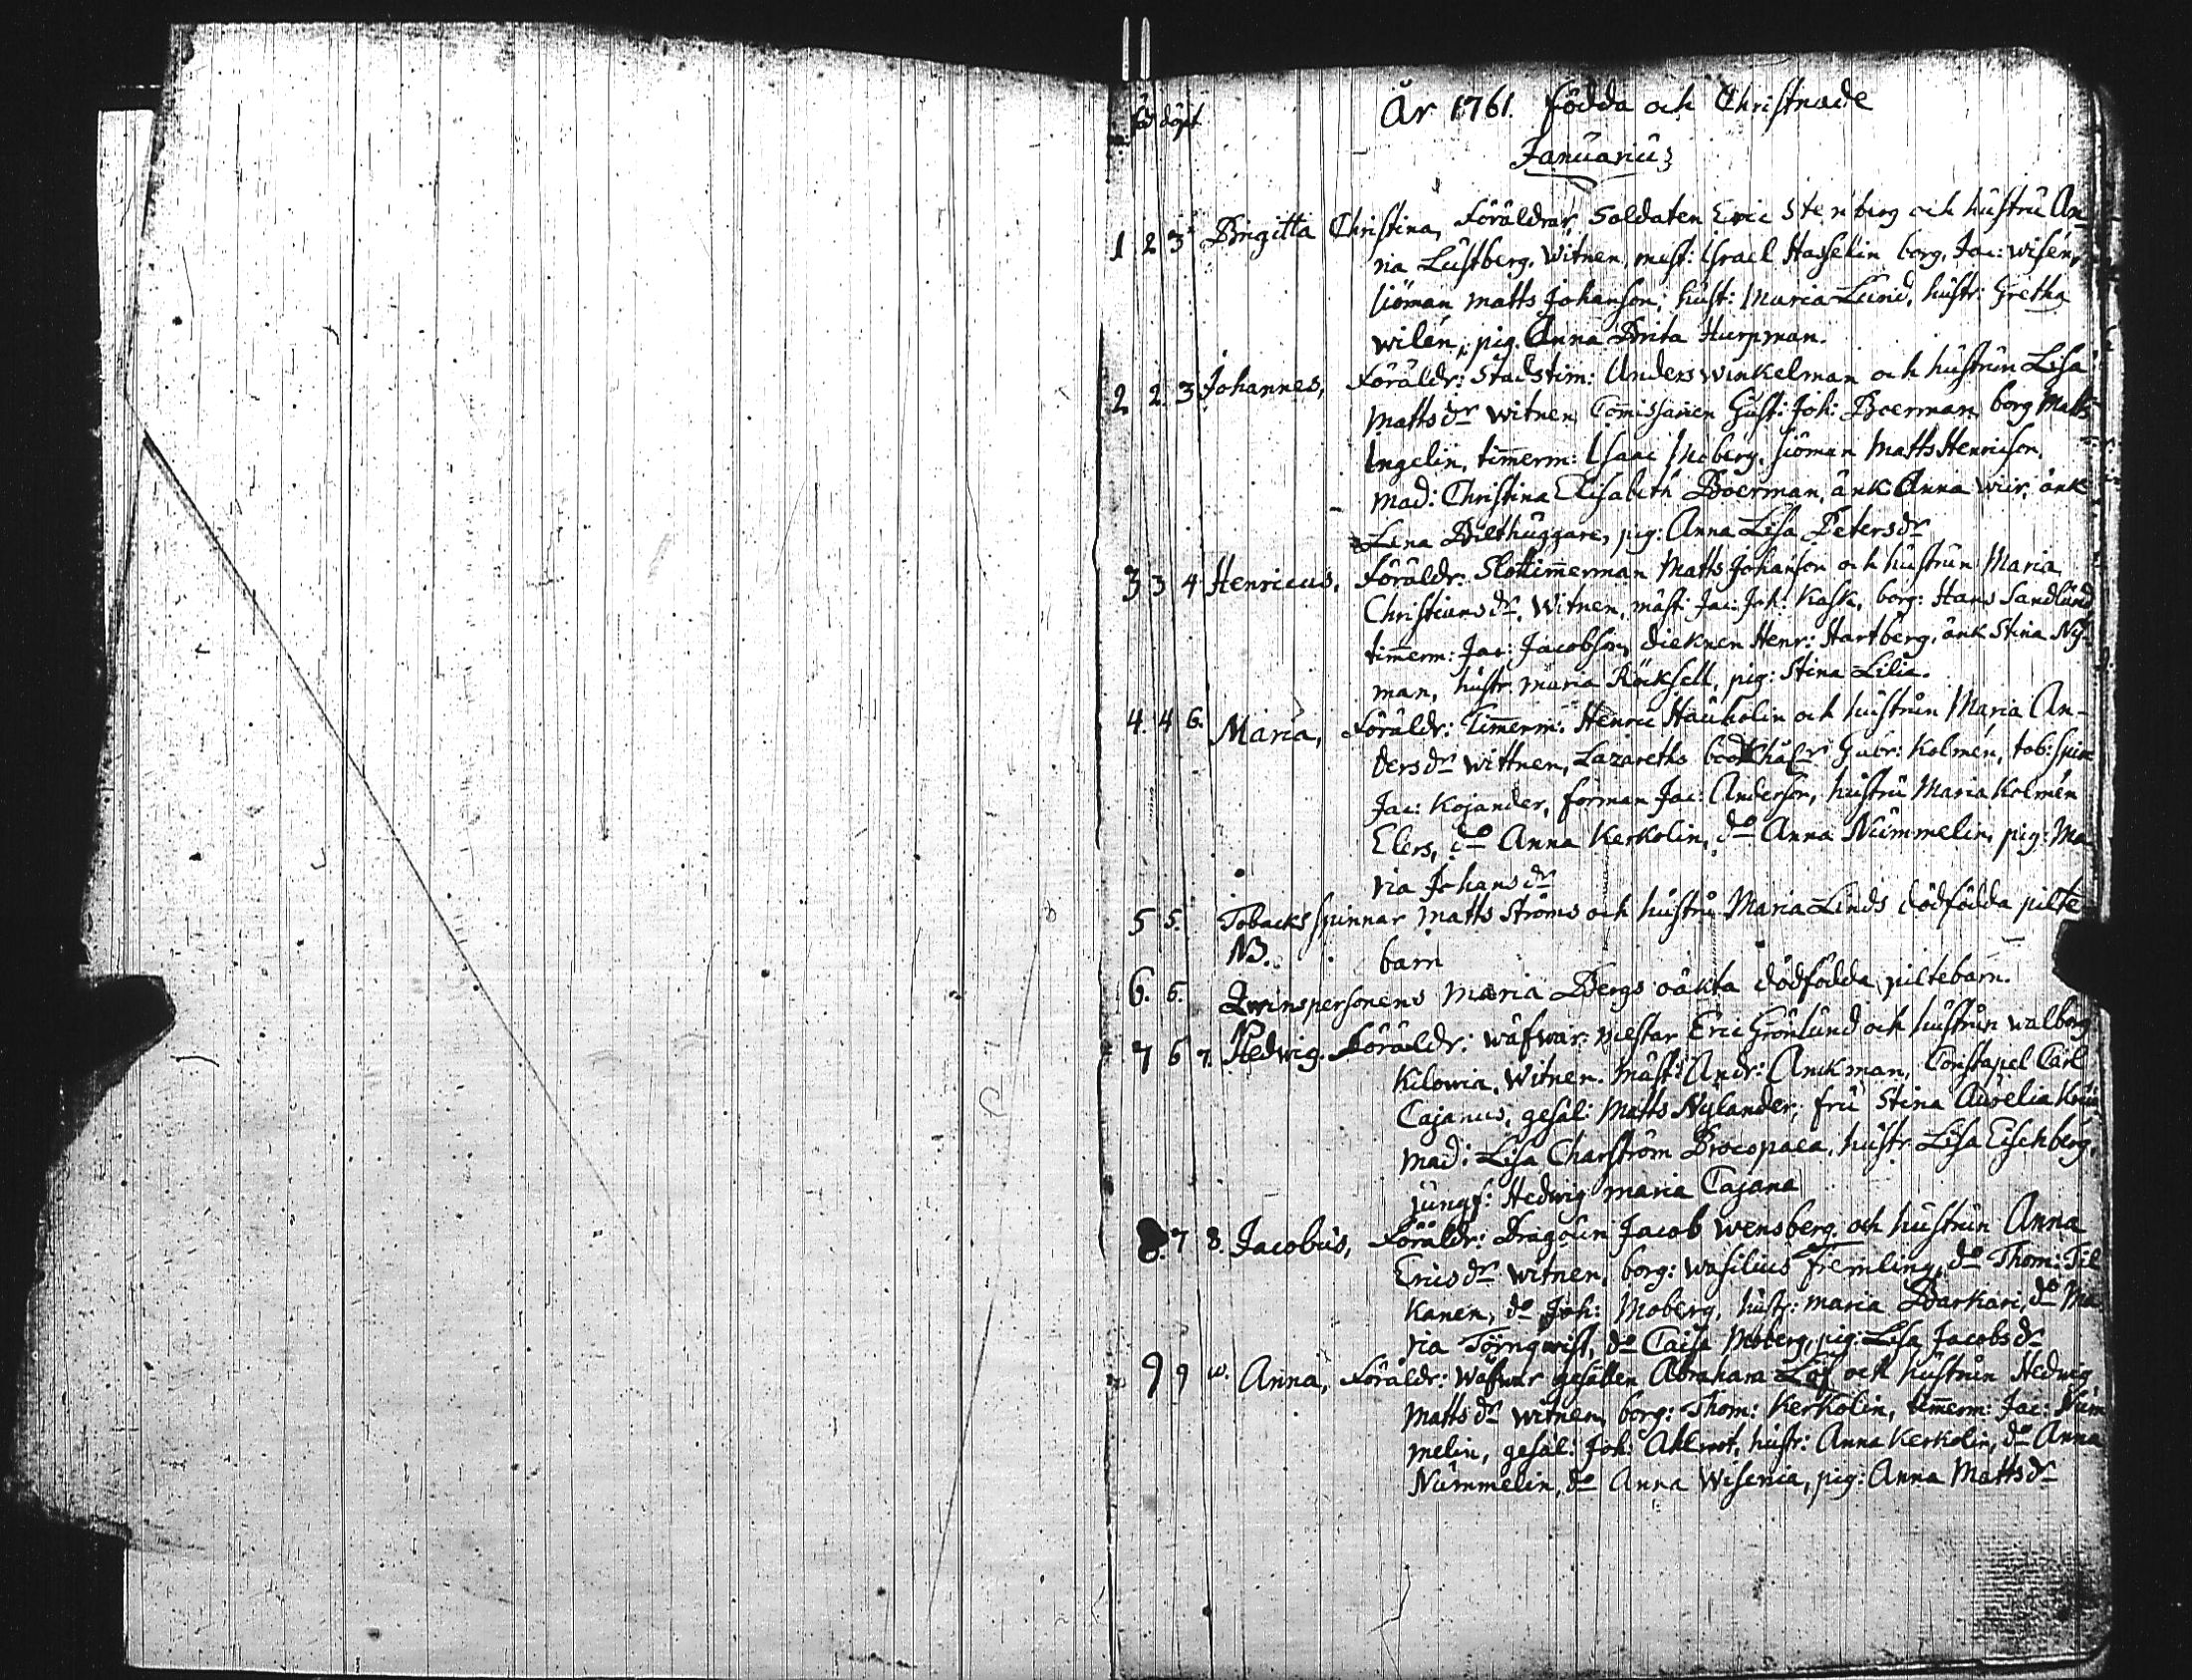 föd döpt År 1761. födda och Christnade
Januarius
1 2 3 Brigitta Christina, Föräldrar, Soldaten Eric Stenberg och hustru An-
na Lustberg. Witnen, mest: Israel Hasselin borg. Jac: Wisen,
siöman Matts Johanson; hust: Maria Lund, hustr: Gretha
Wilén, pig. Anna Brita Hurpman.
2 2. 3 Johannes, Föräldr: Stadstim: Anders Winkelman och hustrun Lisa
Mattsdr witnen Comissarien Gust: Joh: Boerman borg Matts
Ingelin, timmerm: Isaac Moberg, siöman Matts Henricson,
Mad: Christina Elisabeth Boerman, änk Anna änk
Lena Bilthuggare, pig: Anna Lisa Petersdr
3 3 4 Henricus, Föräldr: Slottimmerman Matts Johanson och hustrun Maria
Christiansdr. Witnen, mäst: Jac: Joh: Kask, borg: Hans Sandlund,
timmerm: Jac: Jacobson, dieknen Henr: Hartberg, änk Stina Ny-
man, hustr. Maria Röcksell, pig: Stina Lilia.
4. 4 6. Maria, Föräldr: Timmerm: Henric Haukolin och hustrun Maria An-
dersdr wittnen, Lazareths Gabr: Kolmén, tob: spin
Jac: Kojander, forman Jac: Anderson, hustru Maria Kolmén
Elers, do Anna Kerkolin, do Anna Nummelin, pig: Ma
ria Johansdr
5 5. Tobacks spinnar Matts Ströms och hustru Maria Linds dödfödda pilte
NB. barn
6. 6. Qwinspersonens Maria Bergs oäkta dödfödda piltebarn.
7 6 7. Hedwig. Föräldr: wäfwar mestar Eric Grönlund och hustrun Walborg
Kilowia. Witnen. mäst: Andr: Anckman, Constapel Carl
Cajanus, gesäl: Matts Nylander, fru Stina Aurelia
Mad: Lisa Charström Procopaea, hustr Lisa Eischberg,
jungf: Hedwig Maria Cajana
8. 7 8. Jacobus, Föräldr: Dragoun Jacob Wensberg och hustrun Anna
Ericsdr witnen, borg: Wasilius Fremling, do Thom: Til
kanen, do Joh: Moberg, hustr: Maria Barkari, do Ma
ria Törnqwist, do Caisa Moberg, pig: Lisa Jacobsdr
9 9 10. Anna, Föräldr: Wäfwar gesällen Abraham Löf och hustrun Hedwig
Mattsdr witnen, borg: Thom: Kerkolin, timmerm: Jac: Num
melin, gesäl: Joh: Ahlroot, hustr: Anna Kerkolin, do Anna
Nummelin, do Anna Wisenia, pig: Anna Mattsdr